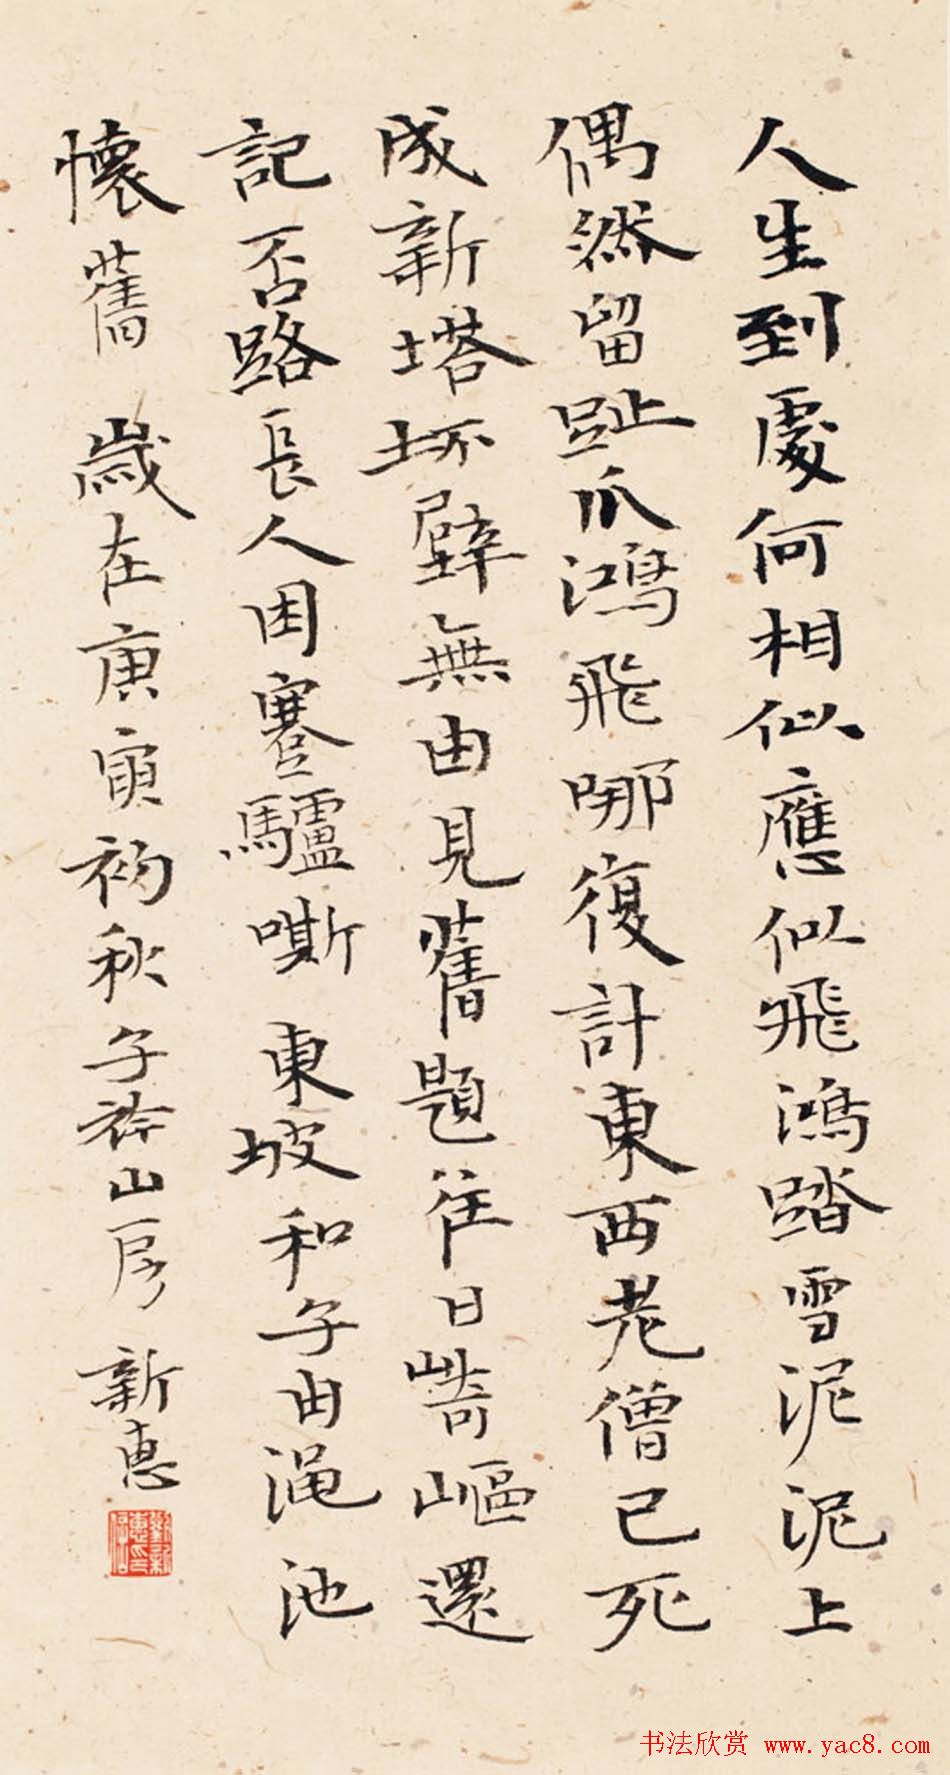 人生到處何相似應似飛鴻踏雪泥泥上
偶然留趾爪鴻飛哪復計東西老僧已死
成新塔坏壁無由見舊題往日崎嶇還
記否路長人困蹇驢嘶 東坡和子由渑池
懷舊 歲在庚寅初秋子衿山房 新惠
书法欣赏 www.yac8.com